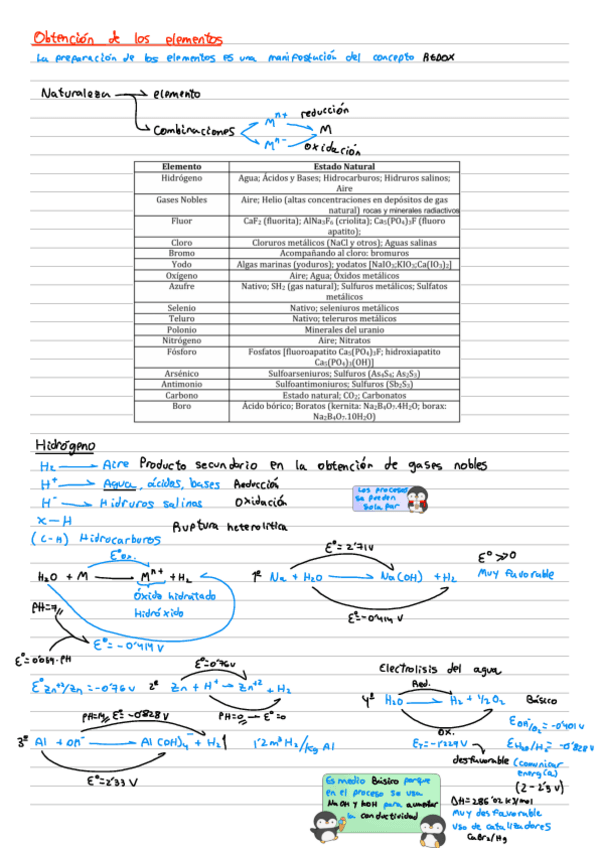 Obtención de los elementos
La preparación de los elementos es una manifestación del concepto REDOX
Naturaleza → elemento
Combinaciones
Mⁿ⁺ reducción
M
Mⁿ⁻ oxidación
Elemento Estado Natural
Hidrógeno Agua; Ácidos y Bases; Hidrocarburos; Hidruros salinos; Aire
Gases Nobles Aire; Helio (altas concentraciones en depósitos de gas natural) rocas y minerales radiactivos
Fluor CaF₂ (fluorita); AlNa₃F₆ (criolita); Ca₅(PO₄)₃F (fluoro apatito);
Cloro Cloruros metálicos (NaCl y otros); Aguas salinas
Bromo Acompañando al cloro: bromuros
Yodo Algas marinas (yoduros); yodatos [NaIO₃;KIO₃;Ca(IO₃)₂]
Oxígeno Aire; Agua; Óxidos metálicos
Azufre Nativo; SH₂ (gas natural); Sulfuros metálicos; Sulfatos metálicos
Selenio Nativo; seleniuros metálicos
Teluro Nativo; teleruros metálicos
Polonio Minerales del uranio
Nitrógeno Aire; Nitratos
Fósforo Fosfatos [fluoroapatito Ca₅(PO₄)₃F; hidroxiapatito Ca₅(PO₄)₃(OH)]
Arsénico Sulfoarseniuros; Sulfuros (As₄S₄; As₂S₃)
Antimonio Sulfoantimoniuros; Sulfuros (Sb₂S₃)
Carbono Estado natural; CO₂; Carbonatos
Boro Ácido bórico; Boratos (kernita: Na₂B₄O₇.4H₂O; borax: Na₂B₄O₇.10H₂O)
Hidrógeno
H₂ → Aire Producto secundario en la obtención de gases nobles
H⁺ → Agua, ácidos, bases Reducción
H⁻ → Hidruros salinos Oxidación
Los procesos se pueden solapar
X-H
Ruptura heterolítica
(C-H) Hidrocarburos
E°ox.
H₂O + M → Mⁿ⁺ + H₂
Óxido hidratado
Hidróxido
PH=7
E°= -0'414 V
E°=0'059·PH
E°= 2'71V
1º Na + H₂O → Na(OH) + H₂
E°= -0'414 V
E° >> 0
Muy favorable
E°Zn⁺²/Zn = -0'76 V
E°=0'76 V
2º Zn + H⁺ → Zn⁺² + H₂
PH=0 → E°=0
PH=14, E°= -0'828 V
3º Al + OH⁻ → Al(OH)₄⁻ + H₂↑ 1'2 m³ H₂/kg Al
E°=2'33 V
Electrolisis del agua
Red.
4º H₂O → H₂ + ½O₂ Básico
ox.
E_T = -1'229 V
desfavorable (comunicar energía)
E OH⁻/O₂ = -0'401 V
E H₂O/H₂ = -0'828 V
(2-2'3 V)
ΔH=286'02 kJ/mol
Muy desfavorable
uso de catalizadores
Es medio Básico porque en el proceso se usa NaOH y KOH para aumentar la conductividad